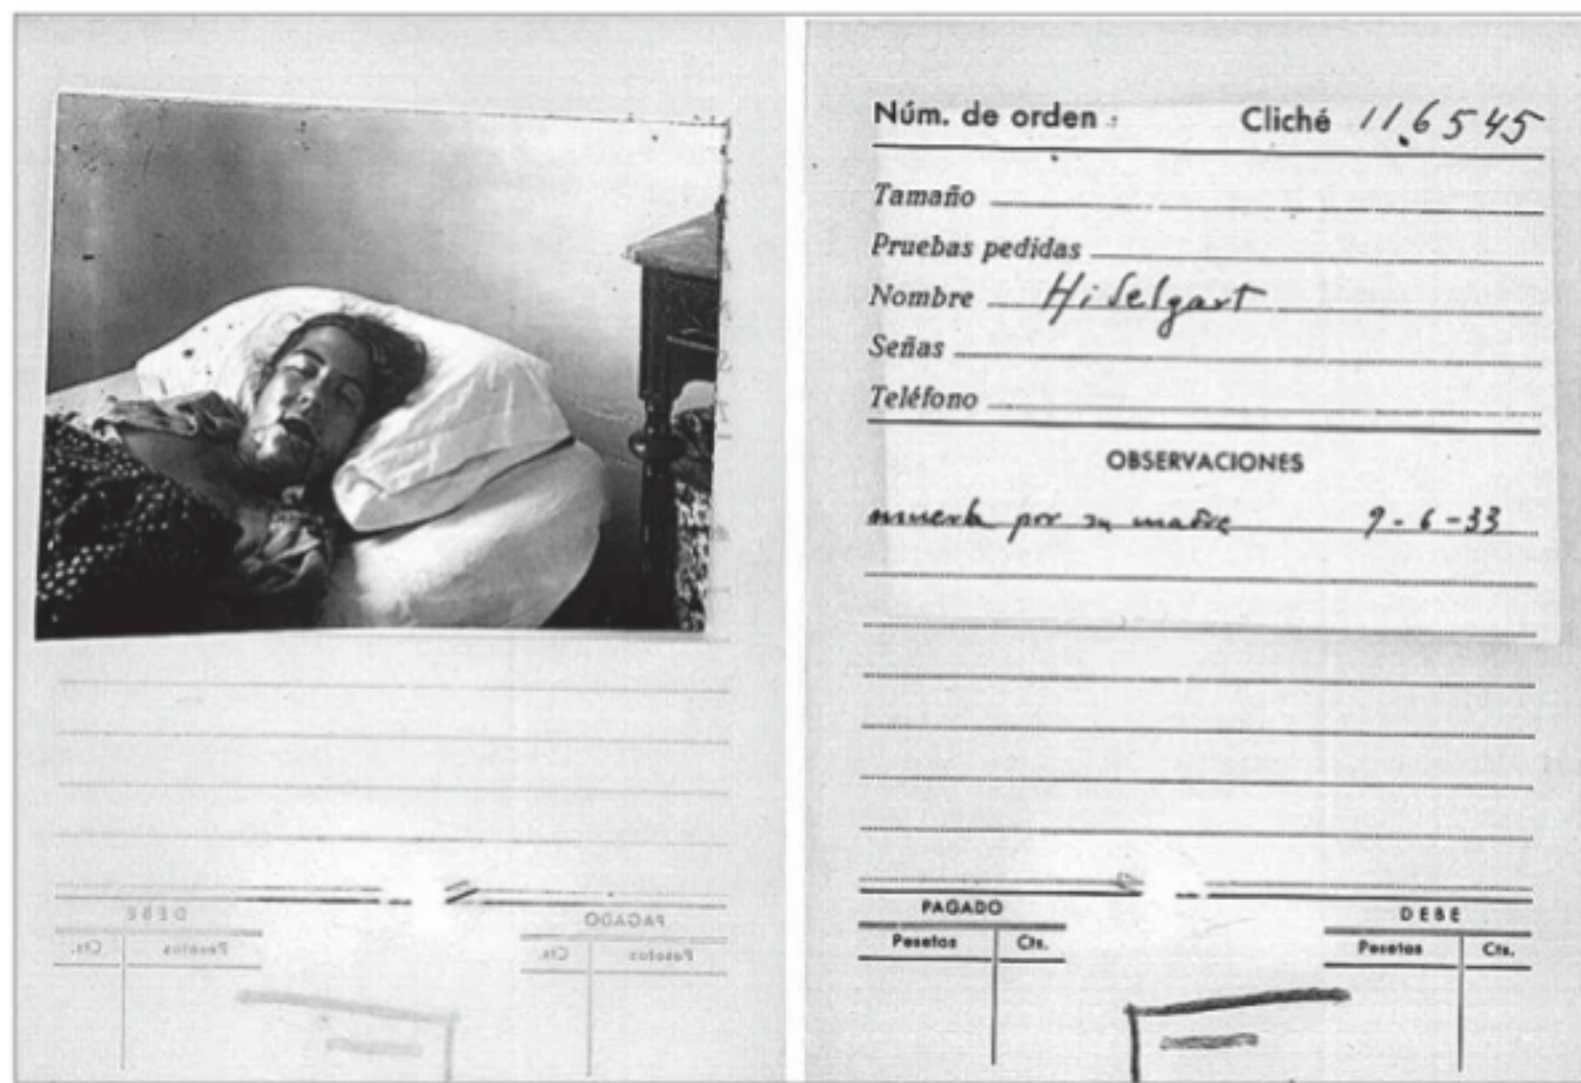 Núm. de orden : Cliché 11.6545
Tamaño
Pruebas pedidas
Nombre Hidelgart
Señas
Teléfono
OBSERVACIONES
muerta por su madre 9-6-33
PAGADO DEBE
Pesetas Cts. Pesetas Cts.
DEBE PAGADO
Cts. Pesetas Cts. Pesetas